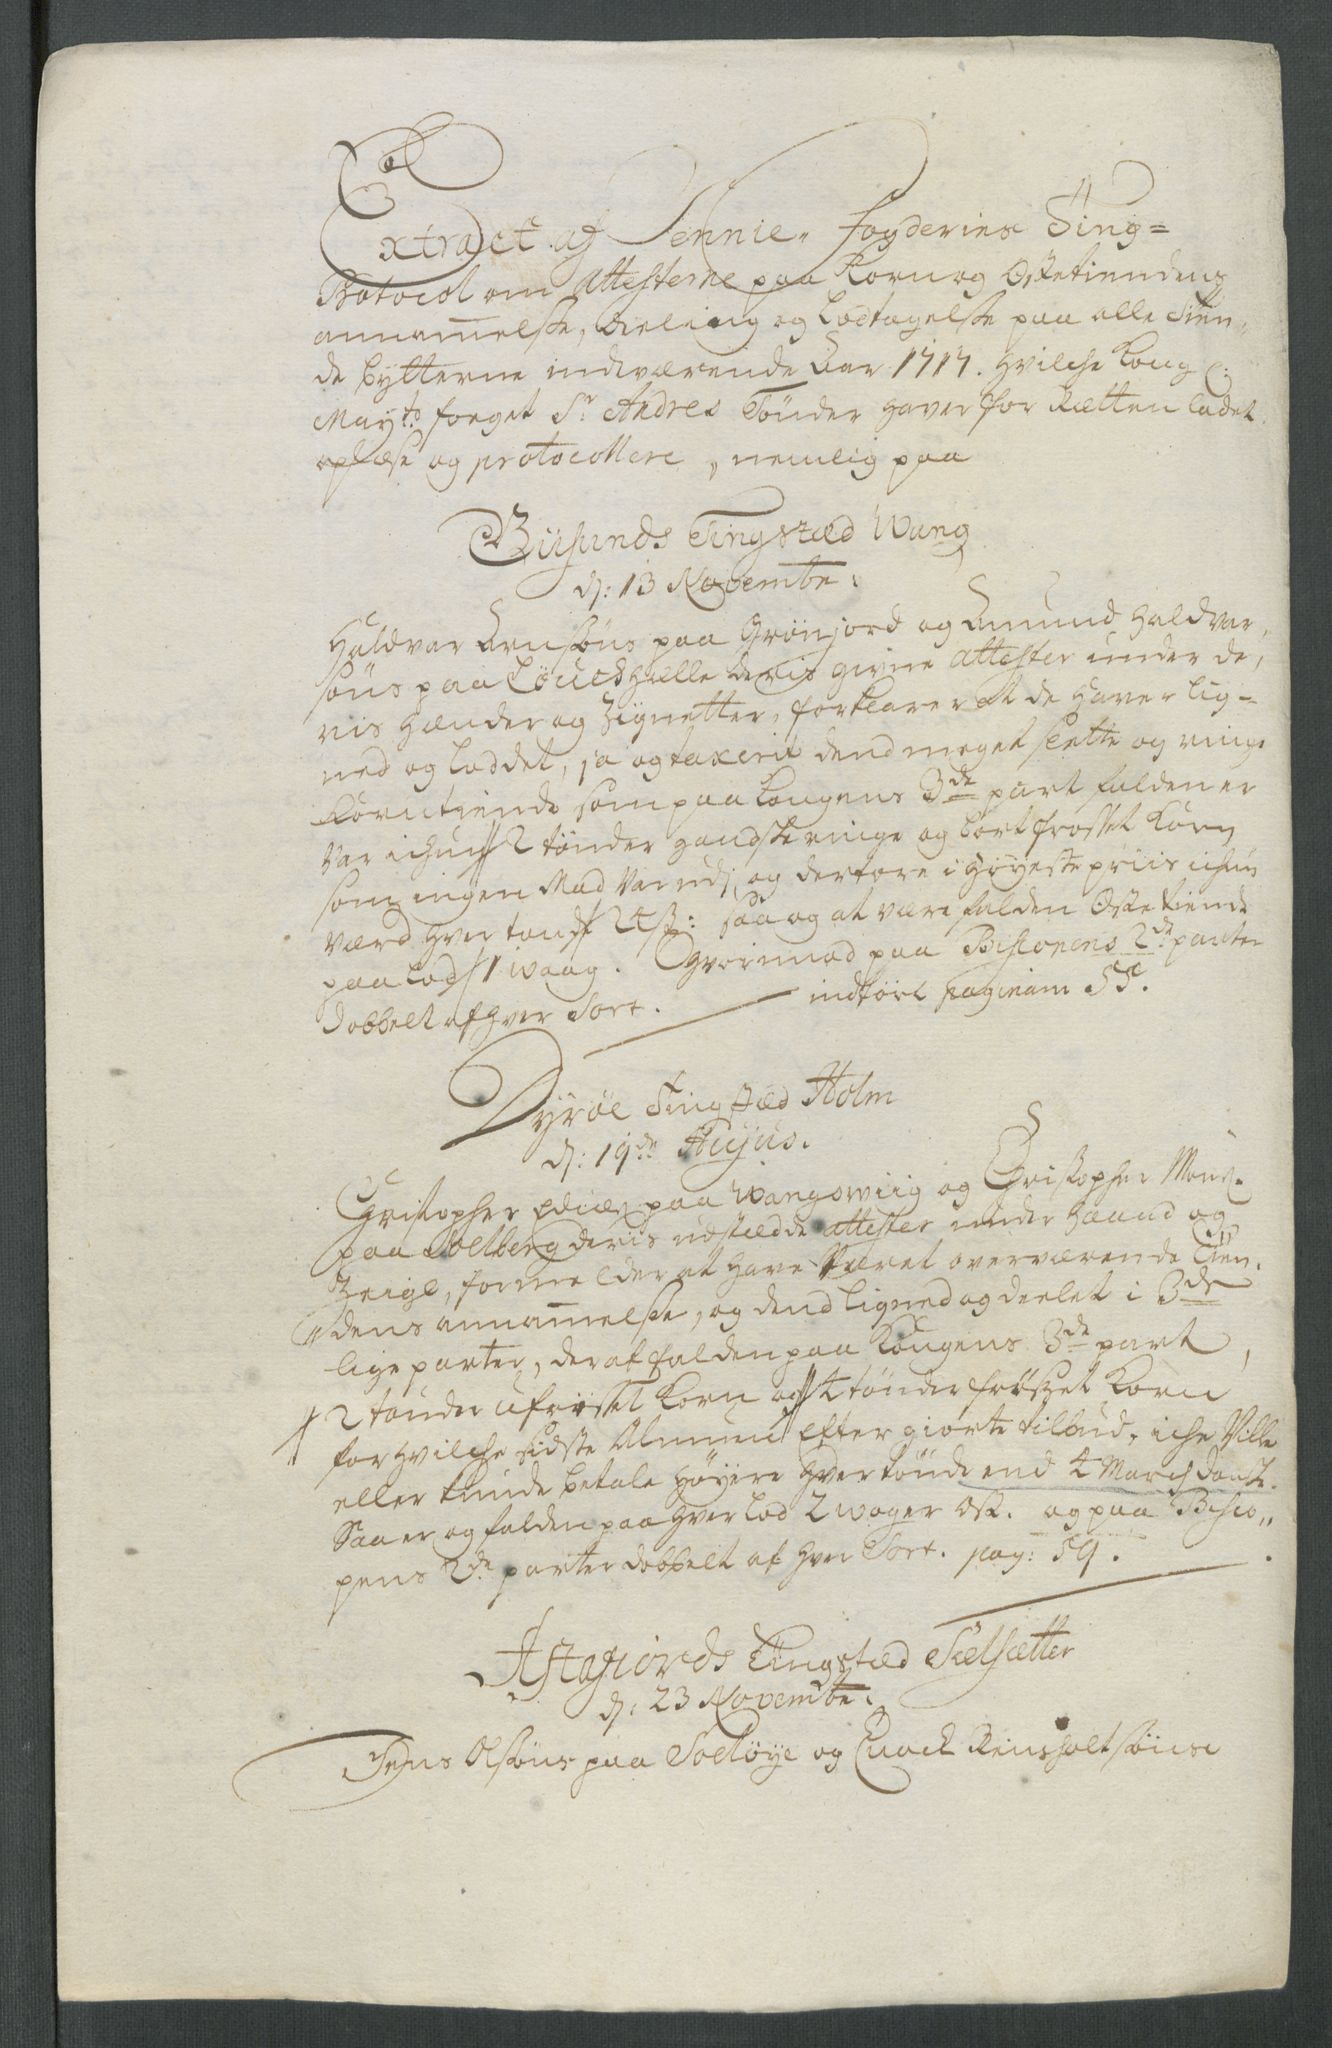 Extract af Sennie- fogderies Ting=
Protocol om Attesterne paa Korn og Ostetiendens
annammelse, deeling og Lodtagelse paa alle Tien,
de bytterne indeværende Aar 1717. hvilche Kong l:
May:ts foeget Sr Andres Tönder haver for Rætten ladet
oplæse og protocollere, nemlig paa
Giisunds Tingstæd Wang
d: 13 Novembr:
Haldvar Arnsöns paa Grönjord og Amund Haldvar,
söns paa deris givne attester under de,
ris Hænder og Zignetter, forklarer at de haver lig-
ned og loddet, ja og taxerit dend meget slette og ringe
Korntiende som paa Kongens 3de part falden er
var ichun 2 tönder gandske ringe og bortfrosset Korn
som ingen Mad var udj, og derfore i Høyeste priis ichun
værd hver tönde 24 s: Saa og at være falden Ostetiende
paa lod 1 waag. Hvorimod paa Biscopens 2de parter
dobbelt af hver Sort. indfört paginam 55.
Dyröe Tingstæd Holm
d: 19de Hujus.
Christopher paa Wangswiig og Christopher
paa Solberg deris udstædde attester under Haand og
Zeigl, formelder at have været overværende Tien,
dens annammelse, og dend ligned og deelet i 3de
lige parter, deraf falden paa Kongens 3de part,
2 tönder ufrosset Korn og 4 tönder frosset Korn
for hvilche sidste Almuen efter giorte tilbud, iche ville
eller kunde betale höyere hver tönde end 4 March danske.
Saa er og falden paa hver lod 2 woger Ost. og paa Bisco,,
pens 2de parter dobbelt af hver Sort. pag: 59.
Astafiords Tingstæd Sælsætter
d: 23 Novembr:
Jens Olsöns paa Rolöye og Enock Reinholtsöns